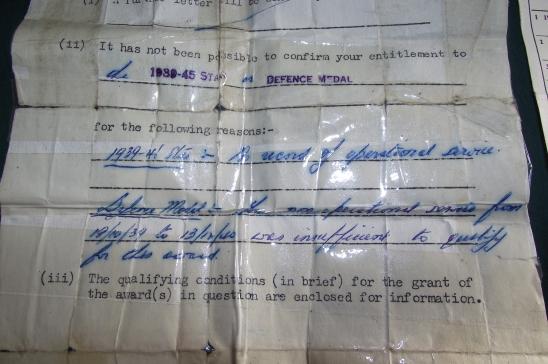 (i) A further letter will be
(ii) It has not been possible to confirm your entitlement to
the 1939-45 STAR or DEFENCE MEDAL
for the following reasons:-
1939-45 Star :- No record of operational service.
Defence Medal :- Your non-operational service from
to was insufficient to qualify
for this award.
(iii) The qualifying conditions (in brief) for the grant of
the award(s) in question are enclosed for information.